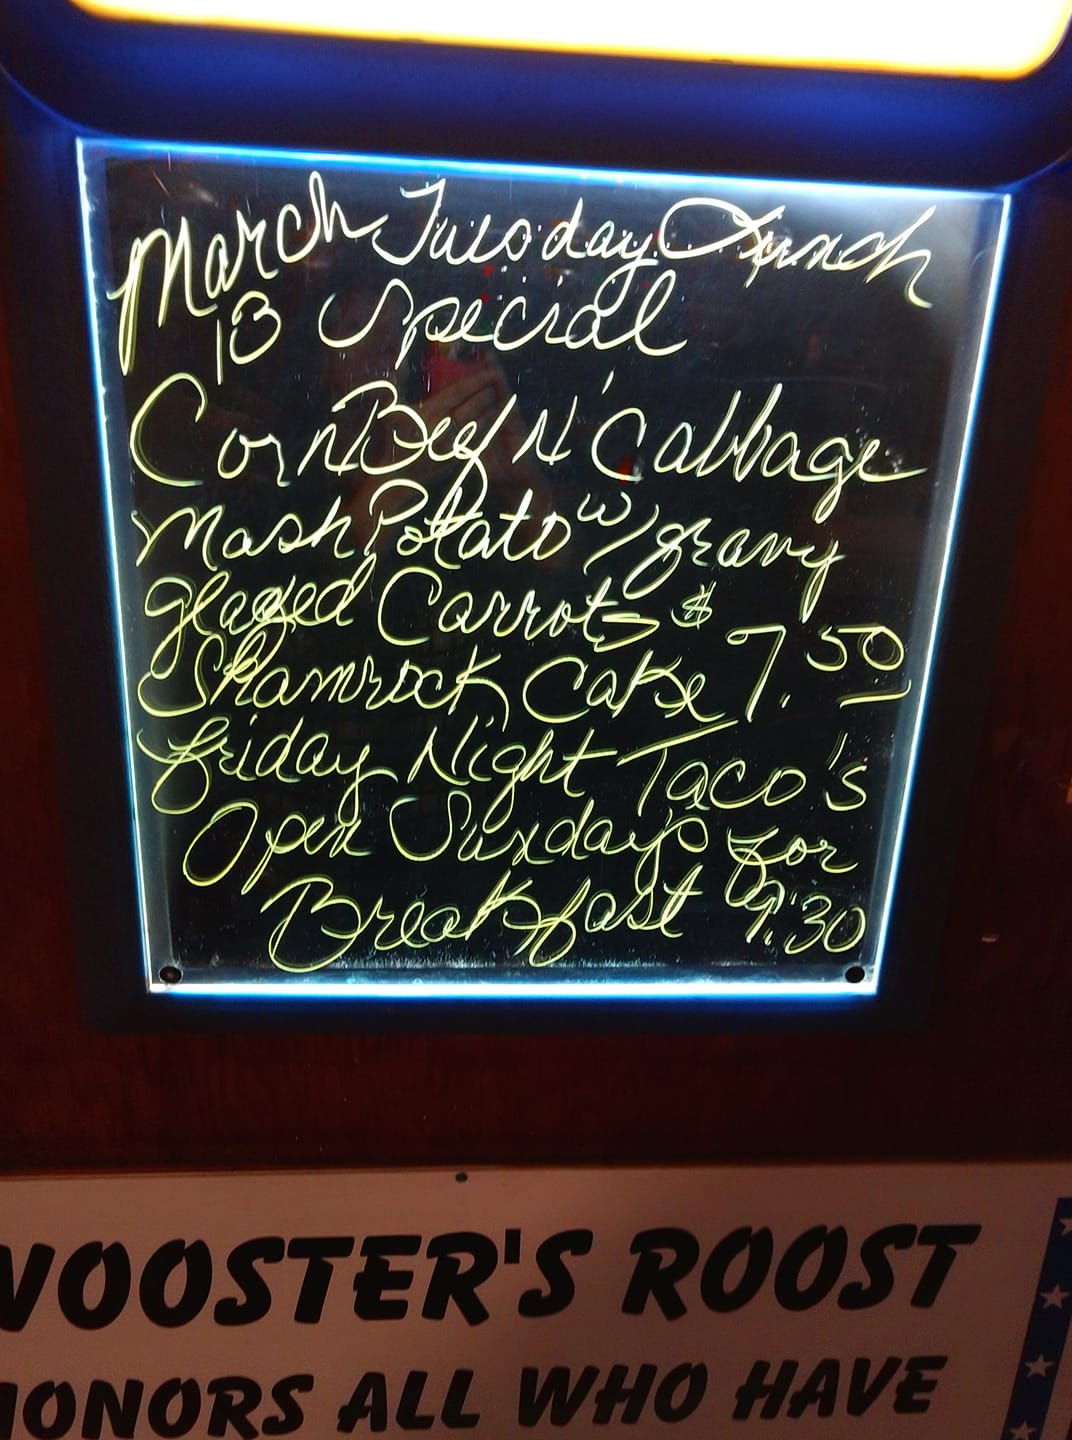 March Tuesday Lunch
13 Special
Corn Beef N' Cabbage
Mash Potato w/ gravy
glazed Carrots $
Shamrock Cake 7.50
Friday Night Taco's
Open Sundays for
Breakfast 9:30
WOOSTER'S ROOST
HONORS ALL WHO HAVE